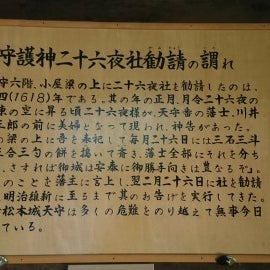 守護神二十六夜社勧請の謂れ
守六階、小屋梁の上に二十六夜社を勧請したのは、
四(1618)年である。其の年の正月、月令二十六夜の
東の空に昇る頃二十六夜様が、天守番の藩士、川井
三郎の前に美婦となって現われ、神告があった。
の梁の上に吾を奉祀して毎月二十六日には三石三斗
三合三勺の餅を搗いて斎き、藩士全部にそれを分ち
、さすれば御城は安泰に御勝手向きは豊なるぞ」。
のことを藩主に言上し、翌二月二十六日に社を勧請
、明治維新に至るまで其のお告げを実行してきた。
松本城天守は多くの危難とのり越えて無事今日
ている。